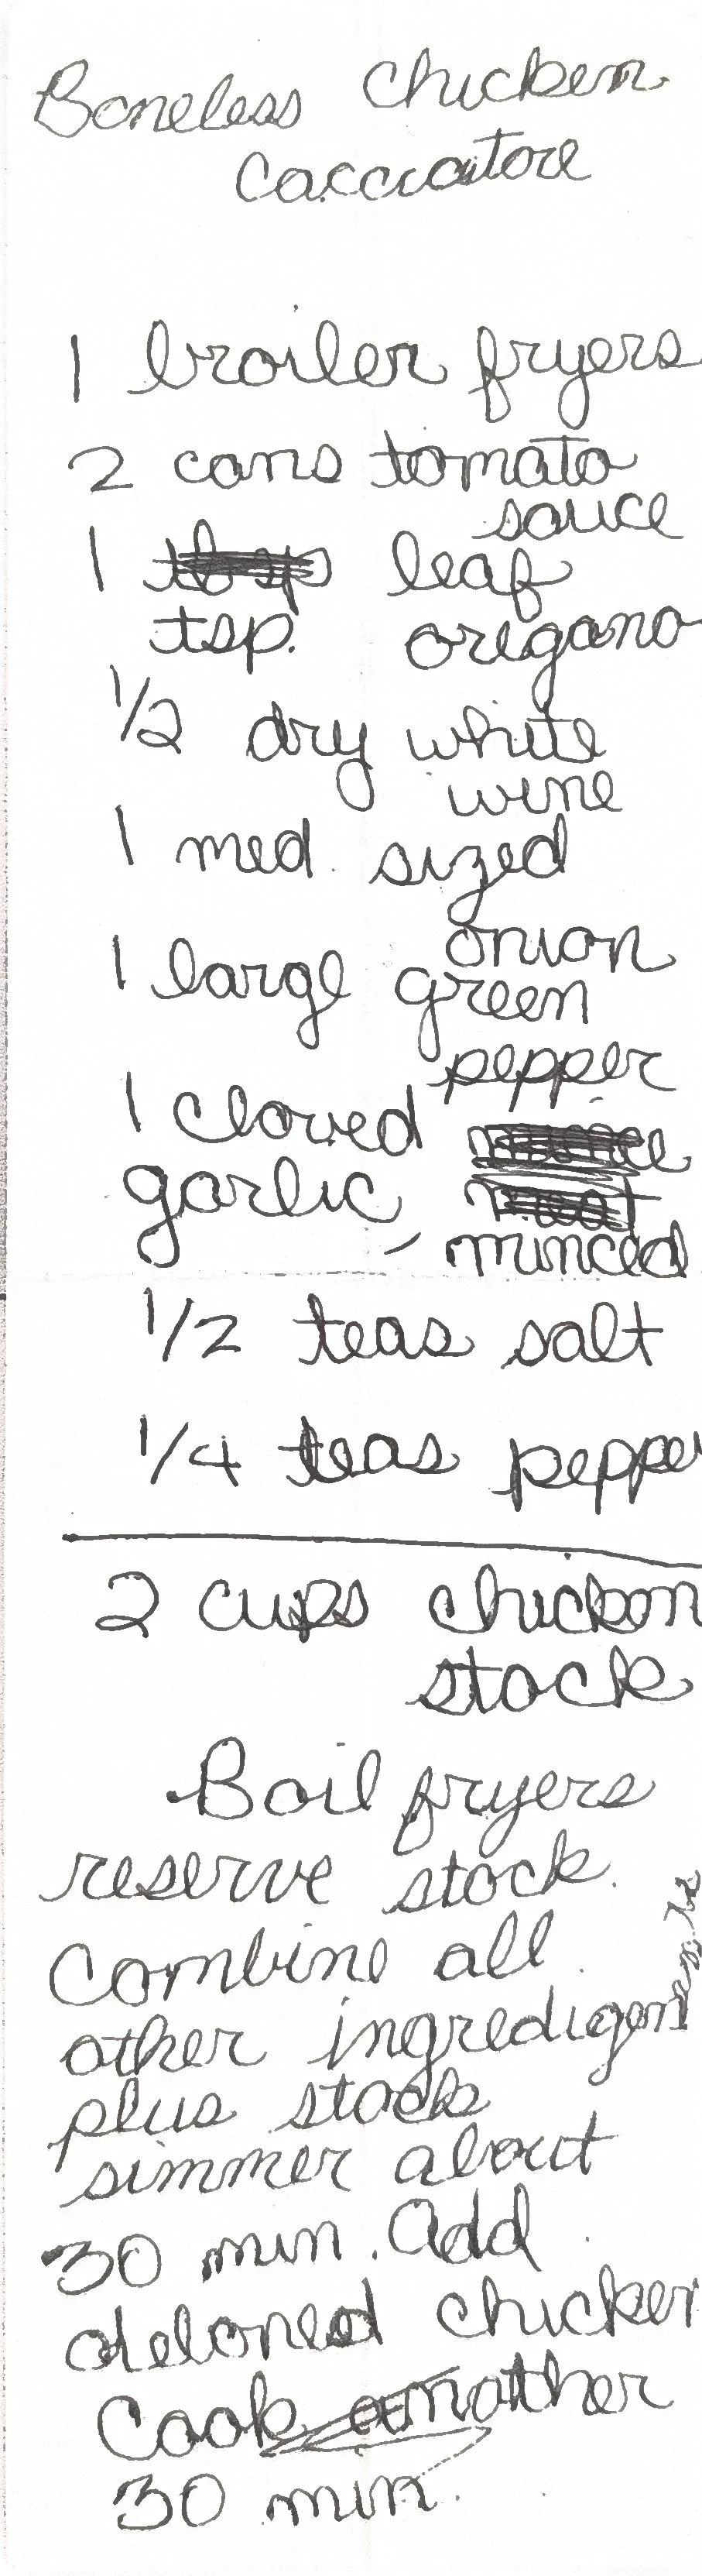 Boneless Chicken
Cacciatore
1 broiler fryers
2 cans tomato
sauce
1 leaf
tsp. oregano
1/2 dry white
wine
1 med. sized
onion
1 large green
pepper
1 cloved
garlic, minced
1/2 teas salt
1/4 teas pepper
2 cups chicken
stock
Boil fryers
reserve stock.
Combine all
other ingredigents
plus stock
simmer about
30 min. Add
deboned chicken
Cook another
30 min.